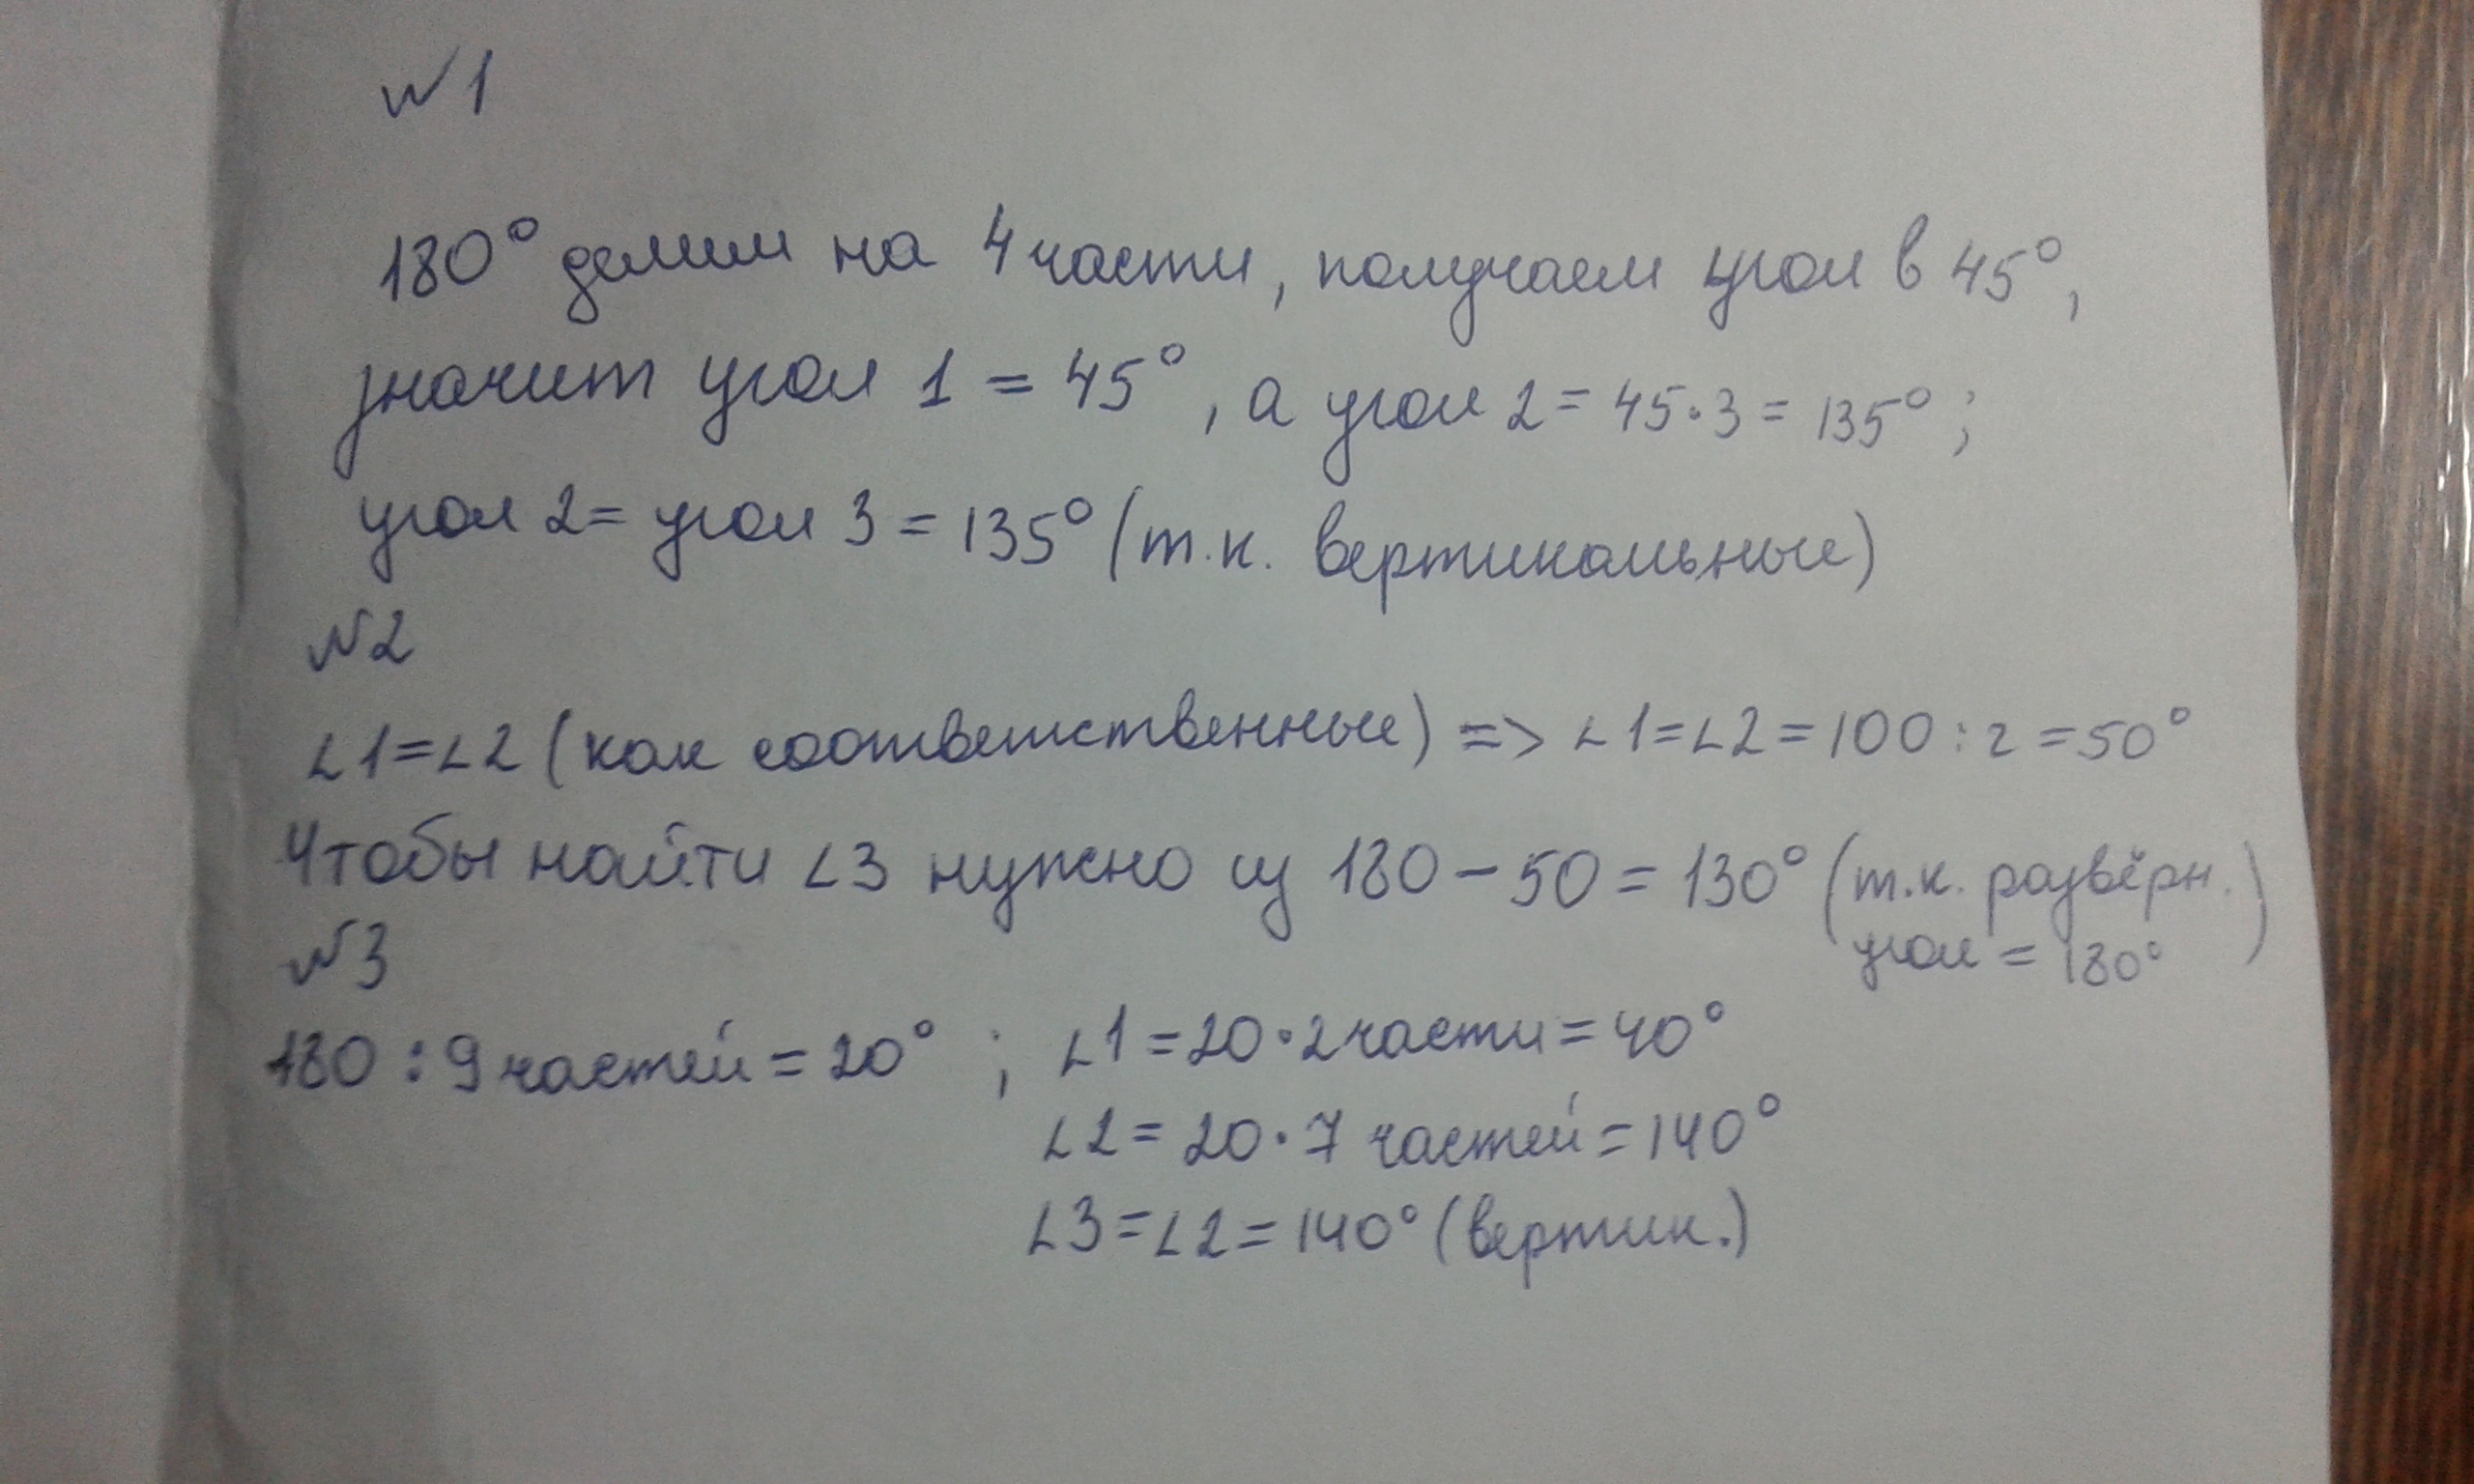 №1
180° делим на 4 части, получаем угол в 45°,
значит угол 1 = 45°, а угол 2 = 45·3 = 135°;
угол 2 = угол 3 = 135° (т.к. вертикальные)
№2
∠1=∠2 (как соответственные) => ∠1=∠2=100:2=50°
Чтобы найти ∠3 нужно из 180-50=130° (т.к. развёрн.
угол = 180°)
№3
180 : 9 частей = 20° ; ∠1 = 20·2 части = 40°
∠2 = 20·7 частей = 140°
∠3 = ∠2 = 140° (вертик.)